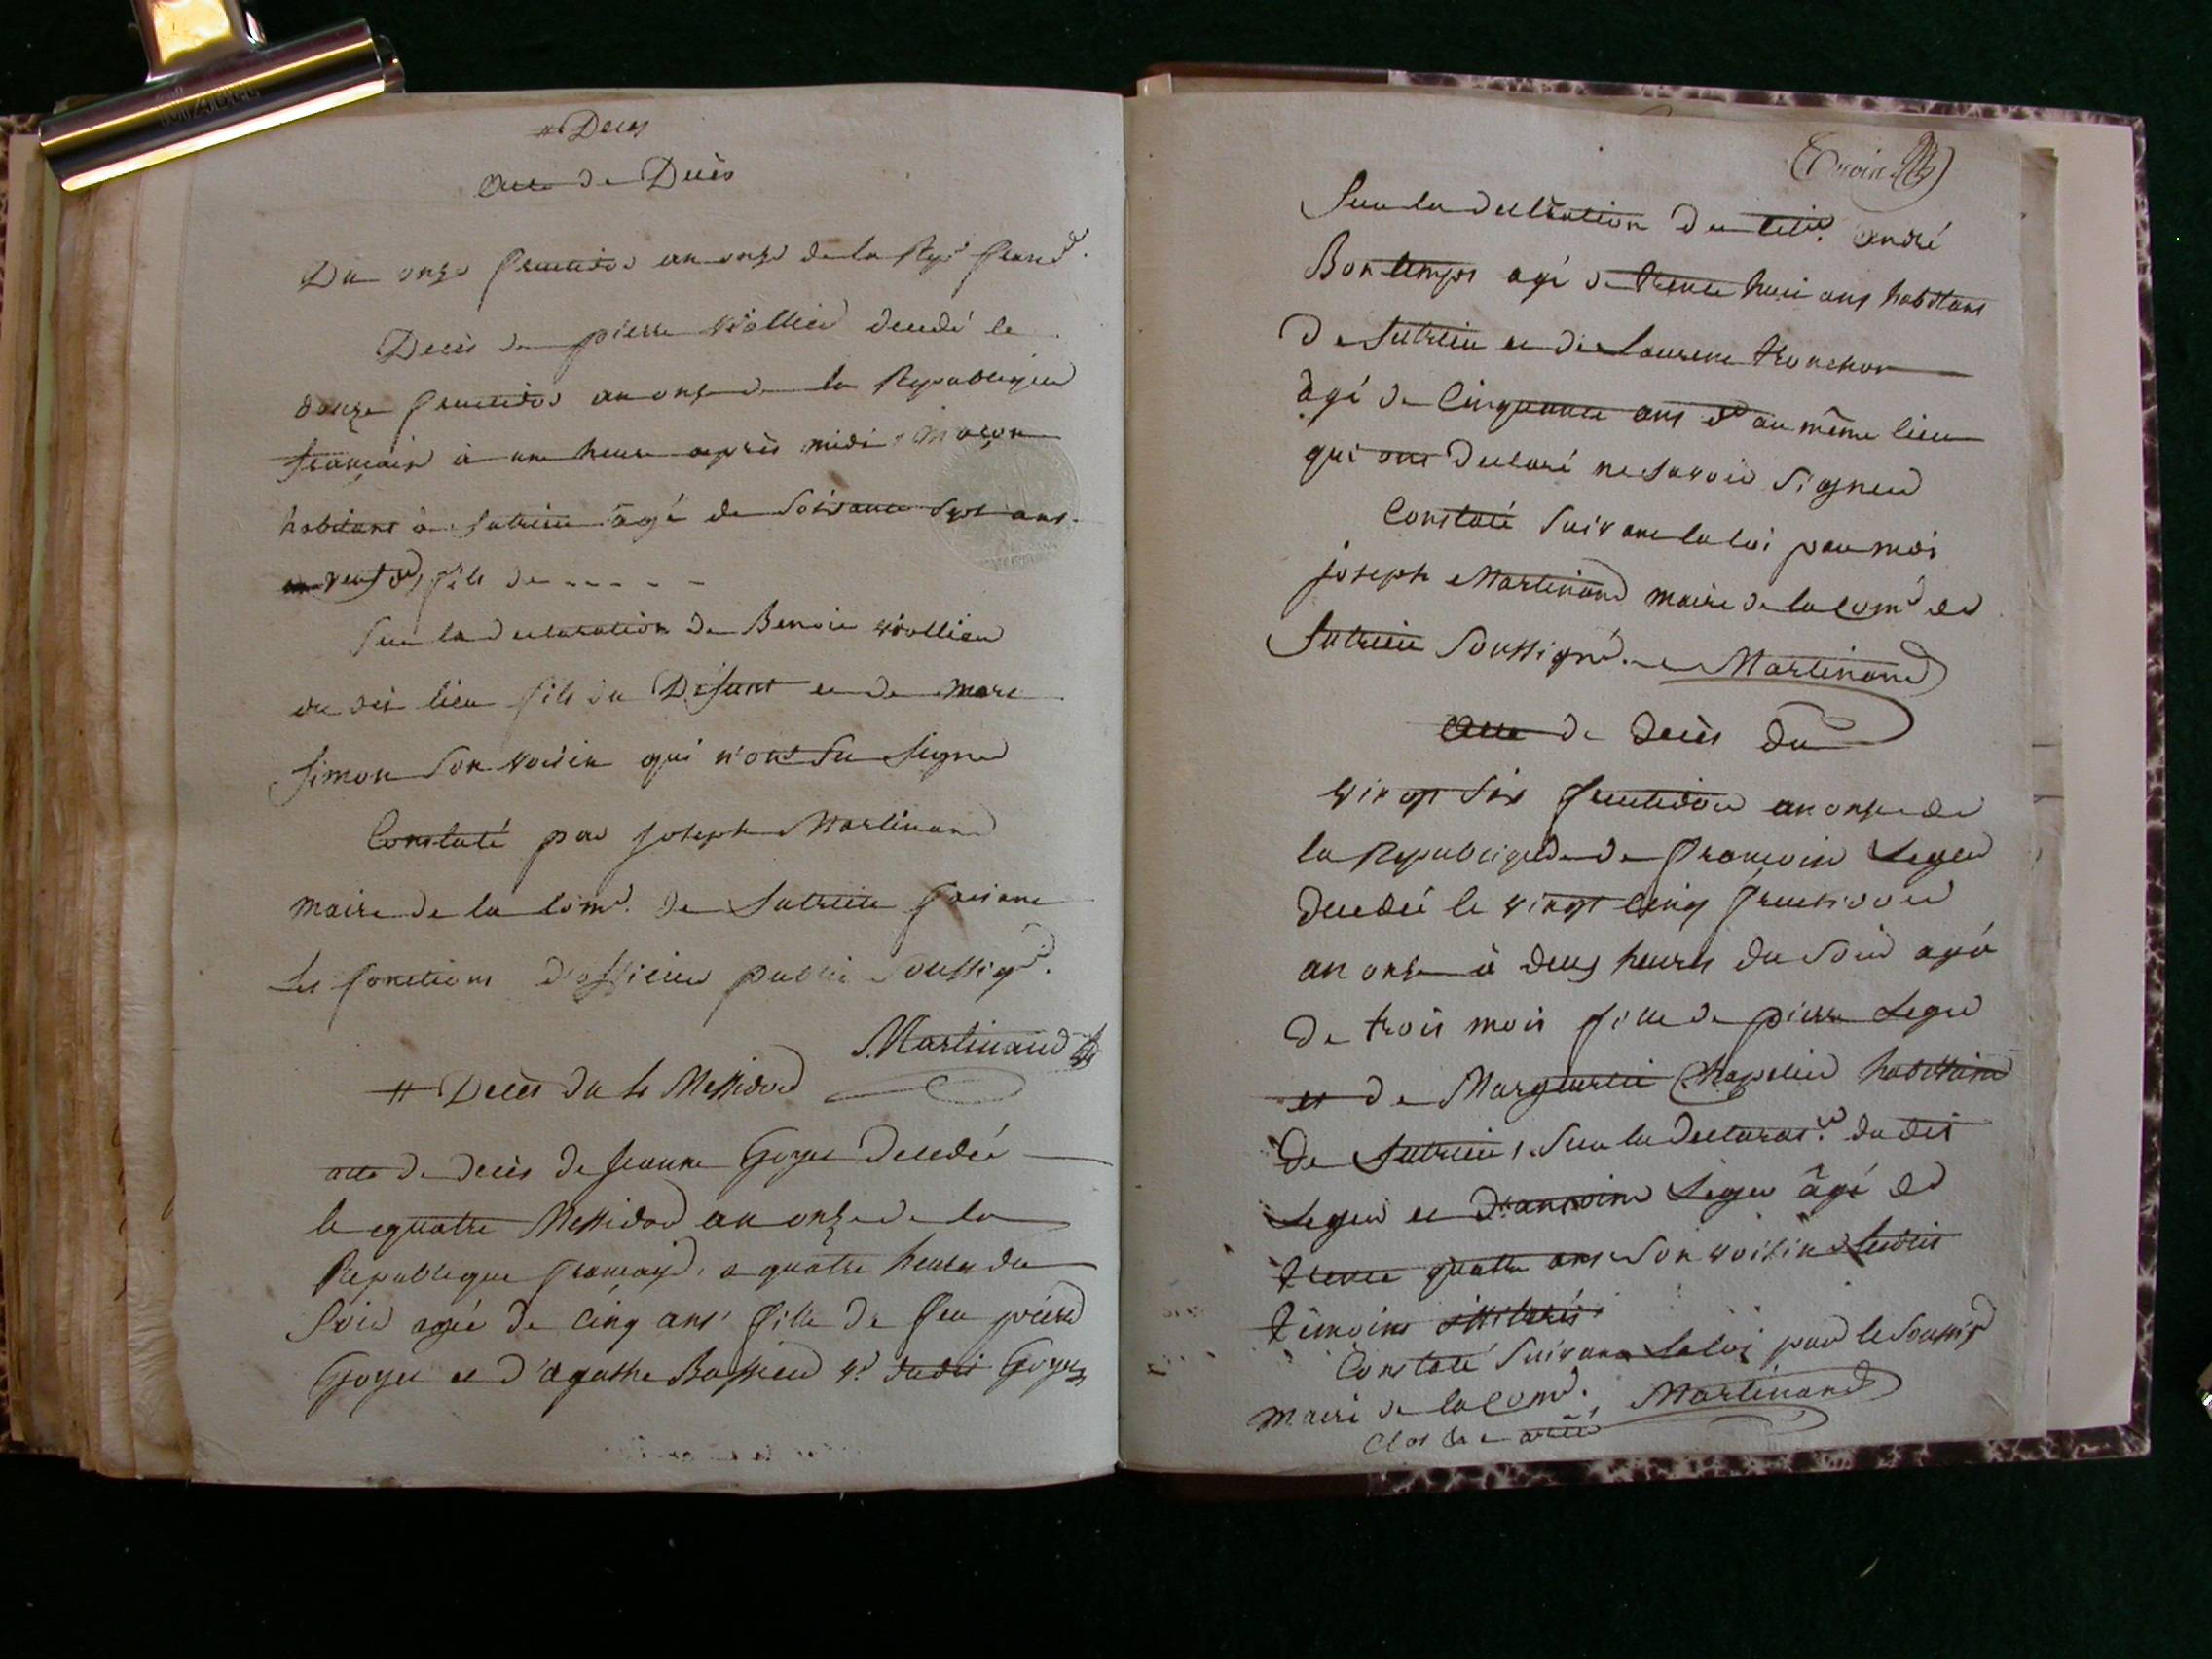 # Deces
Acte de Décès
Du onze fructidor an onze de la Rep.e franc.e
Décès de pierre Viollier decedé le
douze fructidor an onze de la Republique
française à une heure après midi maçon
habitant à Sutrieu âgé de Soixante Sept ans
veuf fils de - - - - -
Sur la declaration de Benoit Viollier
du dit lieu fils du Defunt et de marc
Simon Son voisin qui n'ont Su Signer
Constaté par Joseph Martinand
maire de la Com.e de Sutrieu faisant
les fonctions d'officier public Soussig.é
Martinand
# Décès du 4 Messidor
acte de decès de Jeanne Goyet Decedée
le quatre Messidor an onze de la
Republique française, a quatre heures du
Soir agée de cinq ans fille de feu pierre
Goyet et d'agathe v.e dudit Goyet
Sur la declération du cit.en André
Bontemps agé de trente huit ans habitant
de Sutrieu et de Laurent tronchon
âgé de Cinquante ans d.t au même lieu
qui ont declaré ne Savoir Signer
Constaté Suivant la loi par moi
joseph Martinand maire de la Com.e de
Sutrieu Soussigné. Martinand
Acte de Decès du
vingt Six fructidor an onze de
la Republique de françoise Leger
decedée le vingt Cinq fructidor
an onze à deux heures du Soir agée
de trois mois fille de pierre Leger
et de Marguerite Chapelier habitant
de Sutrieu, Sur la declarat.on du dit
Leger et d'antoine Leger âgé de
trente quatre ans Son voisin lesdits
témoins illitérés
Constaté Suivant la loi par le Soussig.é
maire de la Com.e, Martinand